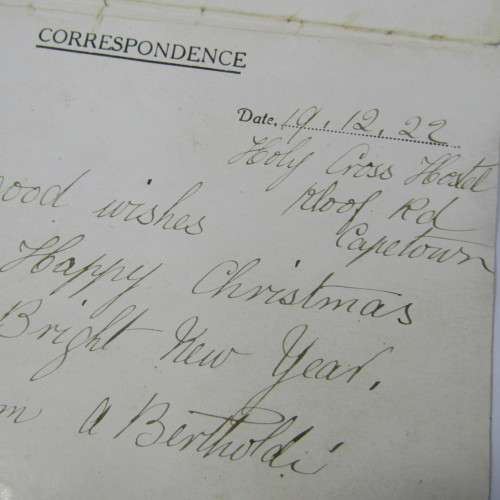 CORRESPONDENCE
Date. 19.12.22
Holy Cross Hostel
Kloof Rd
Capetown
good wishes
Happy Christmas
Bright New Year.
a Bertholdi